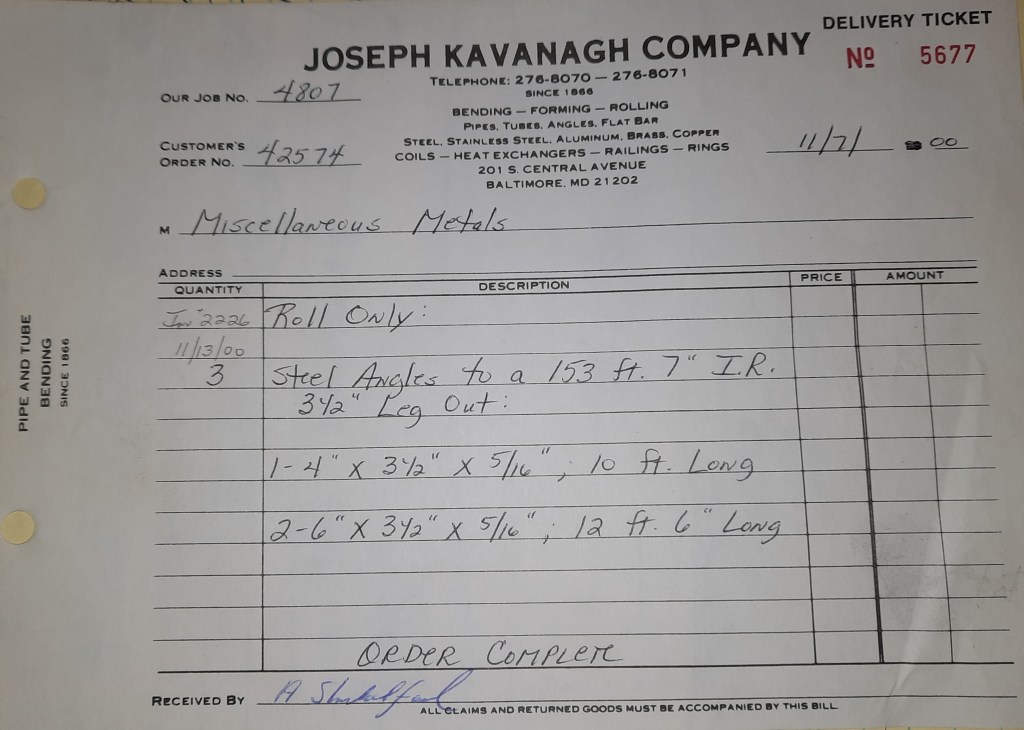 DELIVERY TICKET
JOSEPH KAVANAGH COMPANY
Nº 5677
TELEPHONE: 276-8070 — 276-8071
SINCE 1866
OUR JOB NO. 4807
BENDING — FORMING — ROLLING
PIPES, TUBES, ANGLES, FLAT BAR
STEEL, STAINLESS STEEL, ALUMINUM, BRASS, COPPER
CUSTOMER'S
ORDER NO. 42574
COILS — HEAT EXCHANGERS — RAILINGS — RINGS
11/7/ 00
201 S. CENTRAL AVENUE
BALTIMORE, MD 21202
M Miscellaneous Metals
ADDRESS
QUANTITY DESCRIPTION PRICE AMOUNT
Inv 2226 Roll Only:
11/13/00
3 Steel Angles to a 153 ft. 7" I.R.
3 1/2" Leg Out:
1-4" X 3 1/2" X 5/16"; 10 ft. Long
2-6" X 3 1/2" X 5/16"; 12 ft. 6" Long
ORDER COMPLETE
RECEIVED BY A
ALL CLAIMS AND RETURNED GOODS MUST BE ACCOMPANIED BY THIS BILL
PIPE AND TUBE
BENDING
SINCE 1866